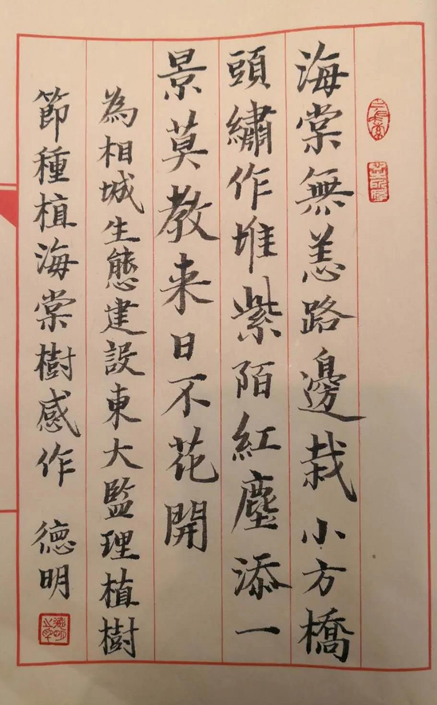 海棠無恙路邊栽小方橋
頭繡作堆紫陌紅塵添一
景莫教来日不花開
為相城生態建設東大監理植樹
節種植海棠樹感作 德明